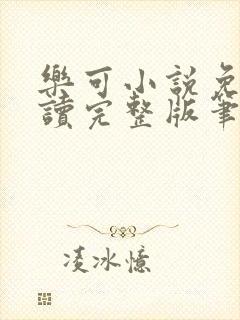 樂可小說免
讀完整版筆
凌冰憶